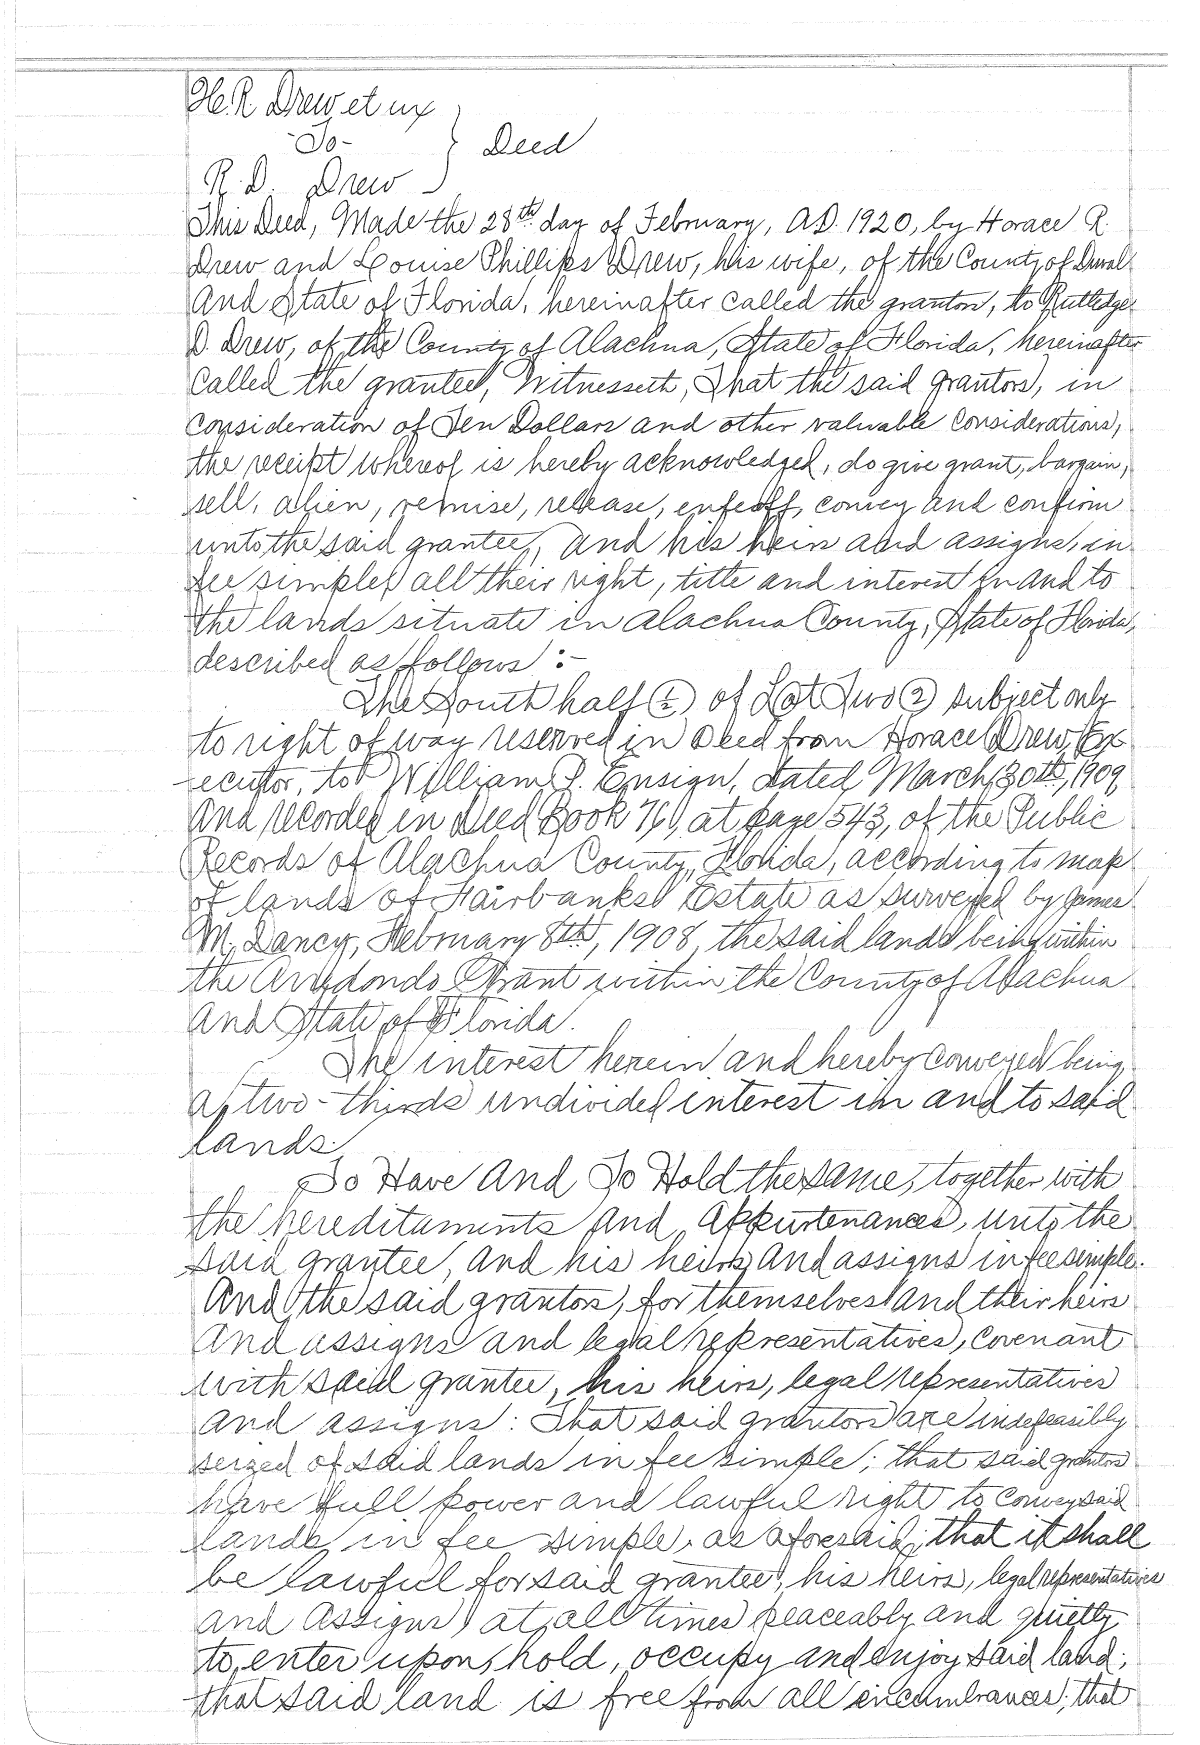 H. R. Drew et ux
-To- } Deed
R. D. Drew
This Deed, Made the 28th day of February, A.D. 1920, by Horace R.
Drew and Louise Phillips Drew, his wife, of the County of Duval
And State of Florida, hereinafter called the grantor, to Rutledge
D. Drew, of the County of Alachua, State of Florida, hereinafter
called the grantee, Witnesseth, That the said grantors, in
consideration of Ten Dollars and other valuable considerations,
the receipt whereof is hereby acknowledged, do give grant, bargain,
sell, alien, remise, release, enfeoff, convey and confirm
unto the said grantee, and his heirs and assigns, in
fee simple, all their right, title and interest in and to
the lands situate in Alachua County, State of Florida,
described as follows :-
The South half (½) of Lot Two (2) subject only
to right of way reserved in Deed from Horace Drew, Ex
-ecutor, to William S. Ensign, dated March 30th, 1909
And recorded in Deed Book 76, at page 543, of the Public
Records of Alachua County, Florida, according to map
of lands of Fairbanks Estate as surveyed by James
M. Dancy, February 8th, 1908, the said lands being within
the Arredondo Grant within the County of Alachua
And State of Florida.
The interest herein and hereby conveyed being
a two-thirds undivided interest in and to said
lands.
To Have And To Hold the same, together with
the hereditaments and appurtenances, unto the
said grantee, and his heirs and assigns in fee simple.
And the said grantors, for themselves and their heirs
and assigns and legal representatives, covenant
with said grantee, his heirs, legal representatives
and assigns: That said grantors are indefeasibly
seized of said lands in fee simple; that said grantors
have full power and lawful right to convey said
lands in fee simple, as aforesaid; that it shall
be lawful for said grantee, his heirs, legal representatives
and assigns, at all times peaceably and quietly
to enter upon, hold, occupy and enjoy said land;
that said land is free from all encumbrances; that